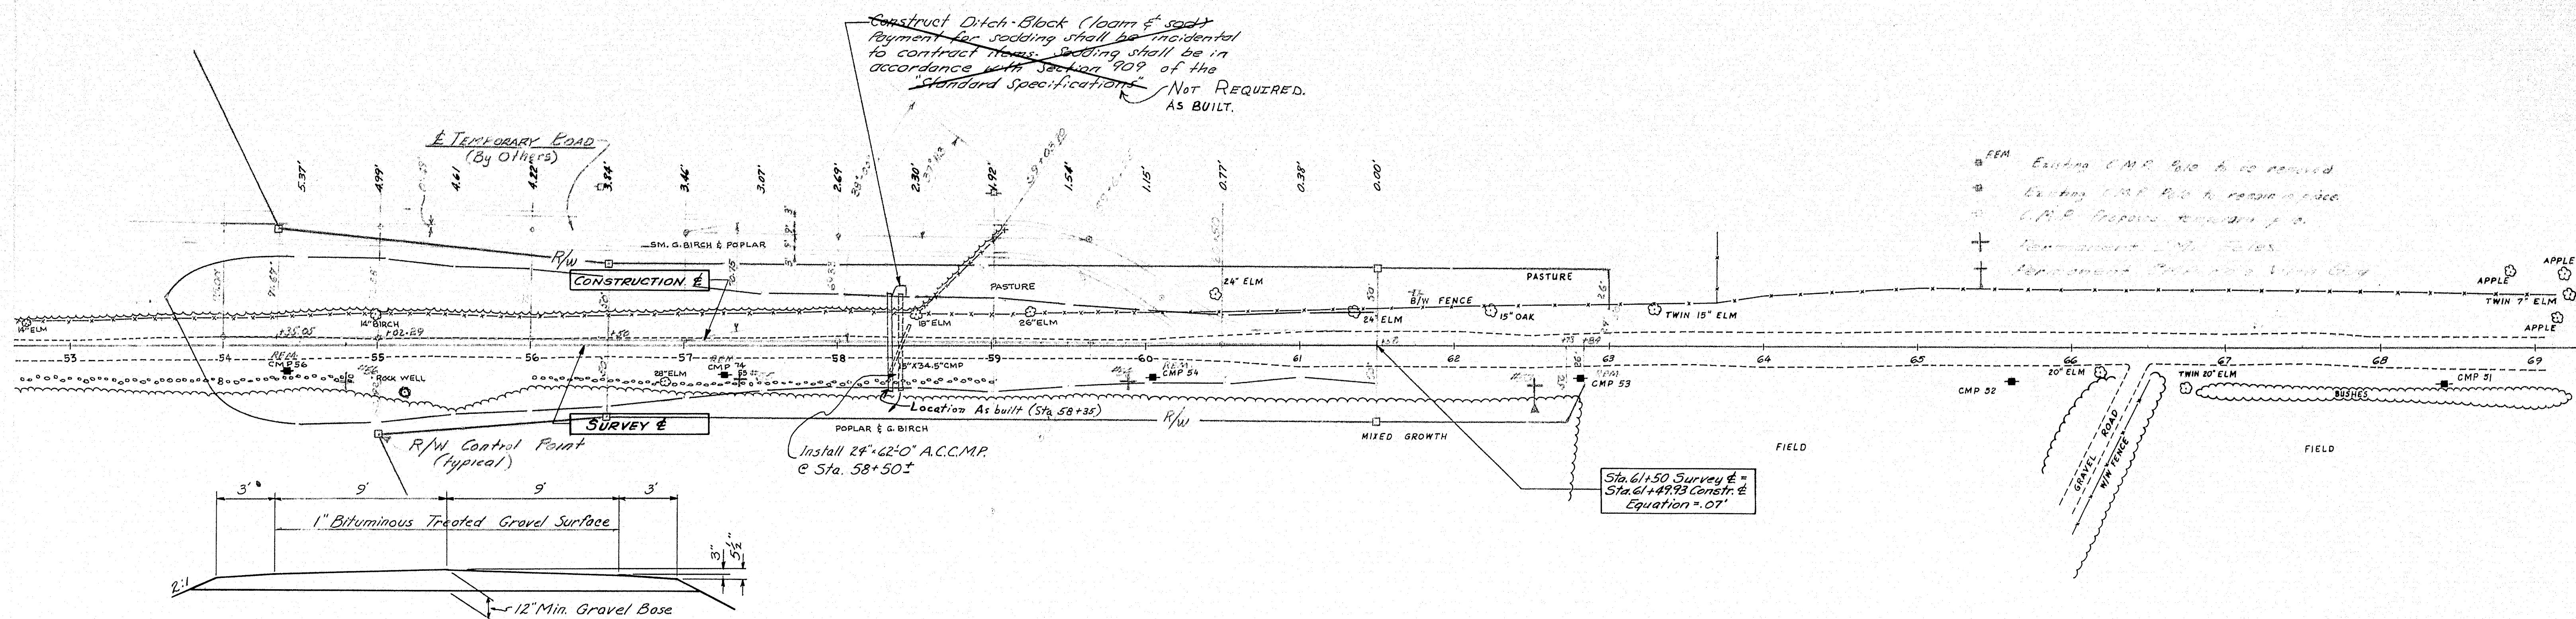 Construct Ditch-Block (loam & sod)
Payment for sodding shall be incidental
to contract items. Sodding shall be in
accordance with Section 909 of the
"Standard Specifications"
NOT REQUIRED.
AS BUILT.
℄ TEMPORARY ROAD
(By Others)
5.37'
4.99'
4.61
4.22'
3.84'
3.46'
3.07'
2.69'
2.30'
1.92'
1.54'
1.15'
0.77'
0.38'
0.00'
REM
Existing C.M.P. Pole to be removed
Existing C.M.P. Pole to remain in place.
C.M.P. Proposed temporary
Permanent CMP Poles
Permanent
SM. G. BIRCH & POPLAR
3' 9' 9' 3'
R/W
CONSTRUCTION ℄
PASTURE
24" ELM
B/W FENCE
PASTURE
26'
50'
APPLE
APPLE
TWIN 7" ELM
APPLE
14" ELM
14" BIRCH
18" ELM
26" ELM
24" ELM
15" OAK
TWIN 15" ELM
+35.05
+02.29
+50
+50
+73 +89
53 54 55 56 57 58 59 60 61 62 63 64 65 66 67 68 69
REM.
CMP 56
ROCK WELL
28" ELM
REM
CMP 55
15"X34.5" CMP
REM.
CMP 54
REM
CMP 53
CMP 52
20" ELM
TWIN 20" ELM
CMP 51
BUSHES
Location As built (Sta 58+35)
SURVEY ℄
POPLAR & G. BIRCH
R/W
MIXED GROWTH
FIELD
GRAVEL ROAD
W/W FENCE
FIELD
R/W Control Point
(typical)
Install 24"x62'-0" A.C.C.M.P.
@ Sta. 58+50±
Sta. 61+50 Survey ℄ =
Sta. 61+49.93 Constr. ℄
Equation = .07'
3' 9' 9' 3'
1" Bituminous Treated Gravel Surface
3"
5½"
2:1
12" Min. Gravel Base